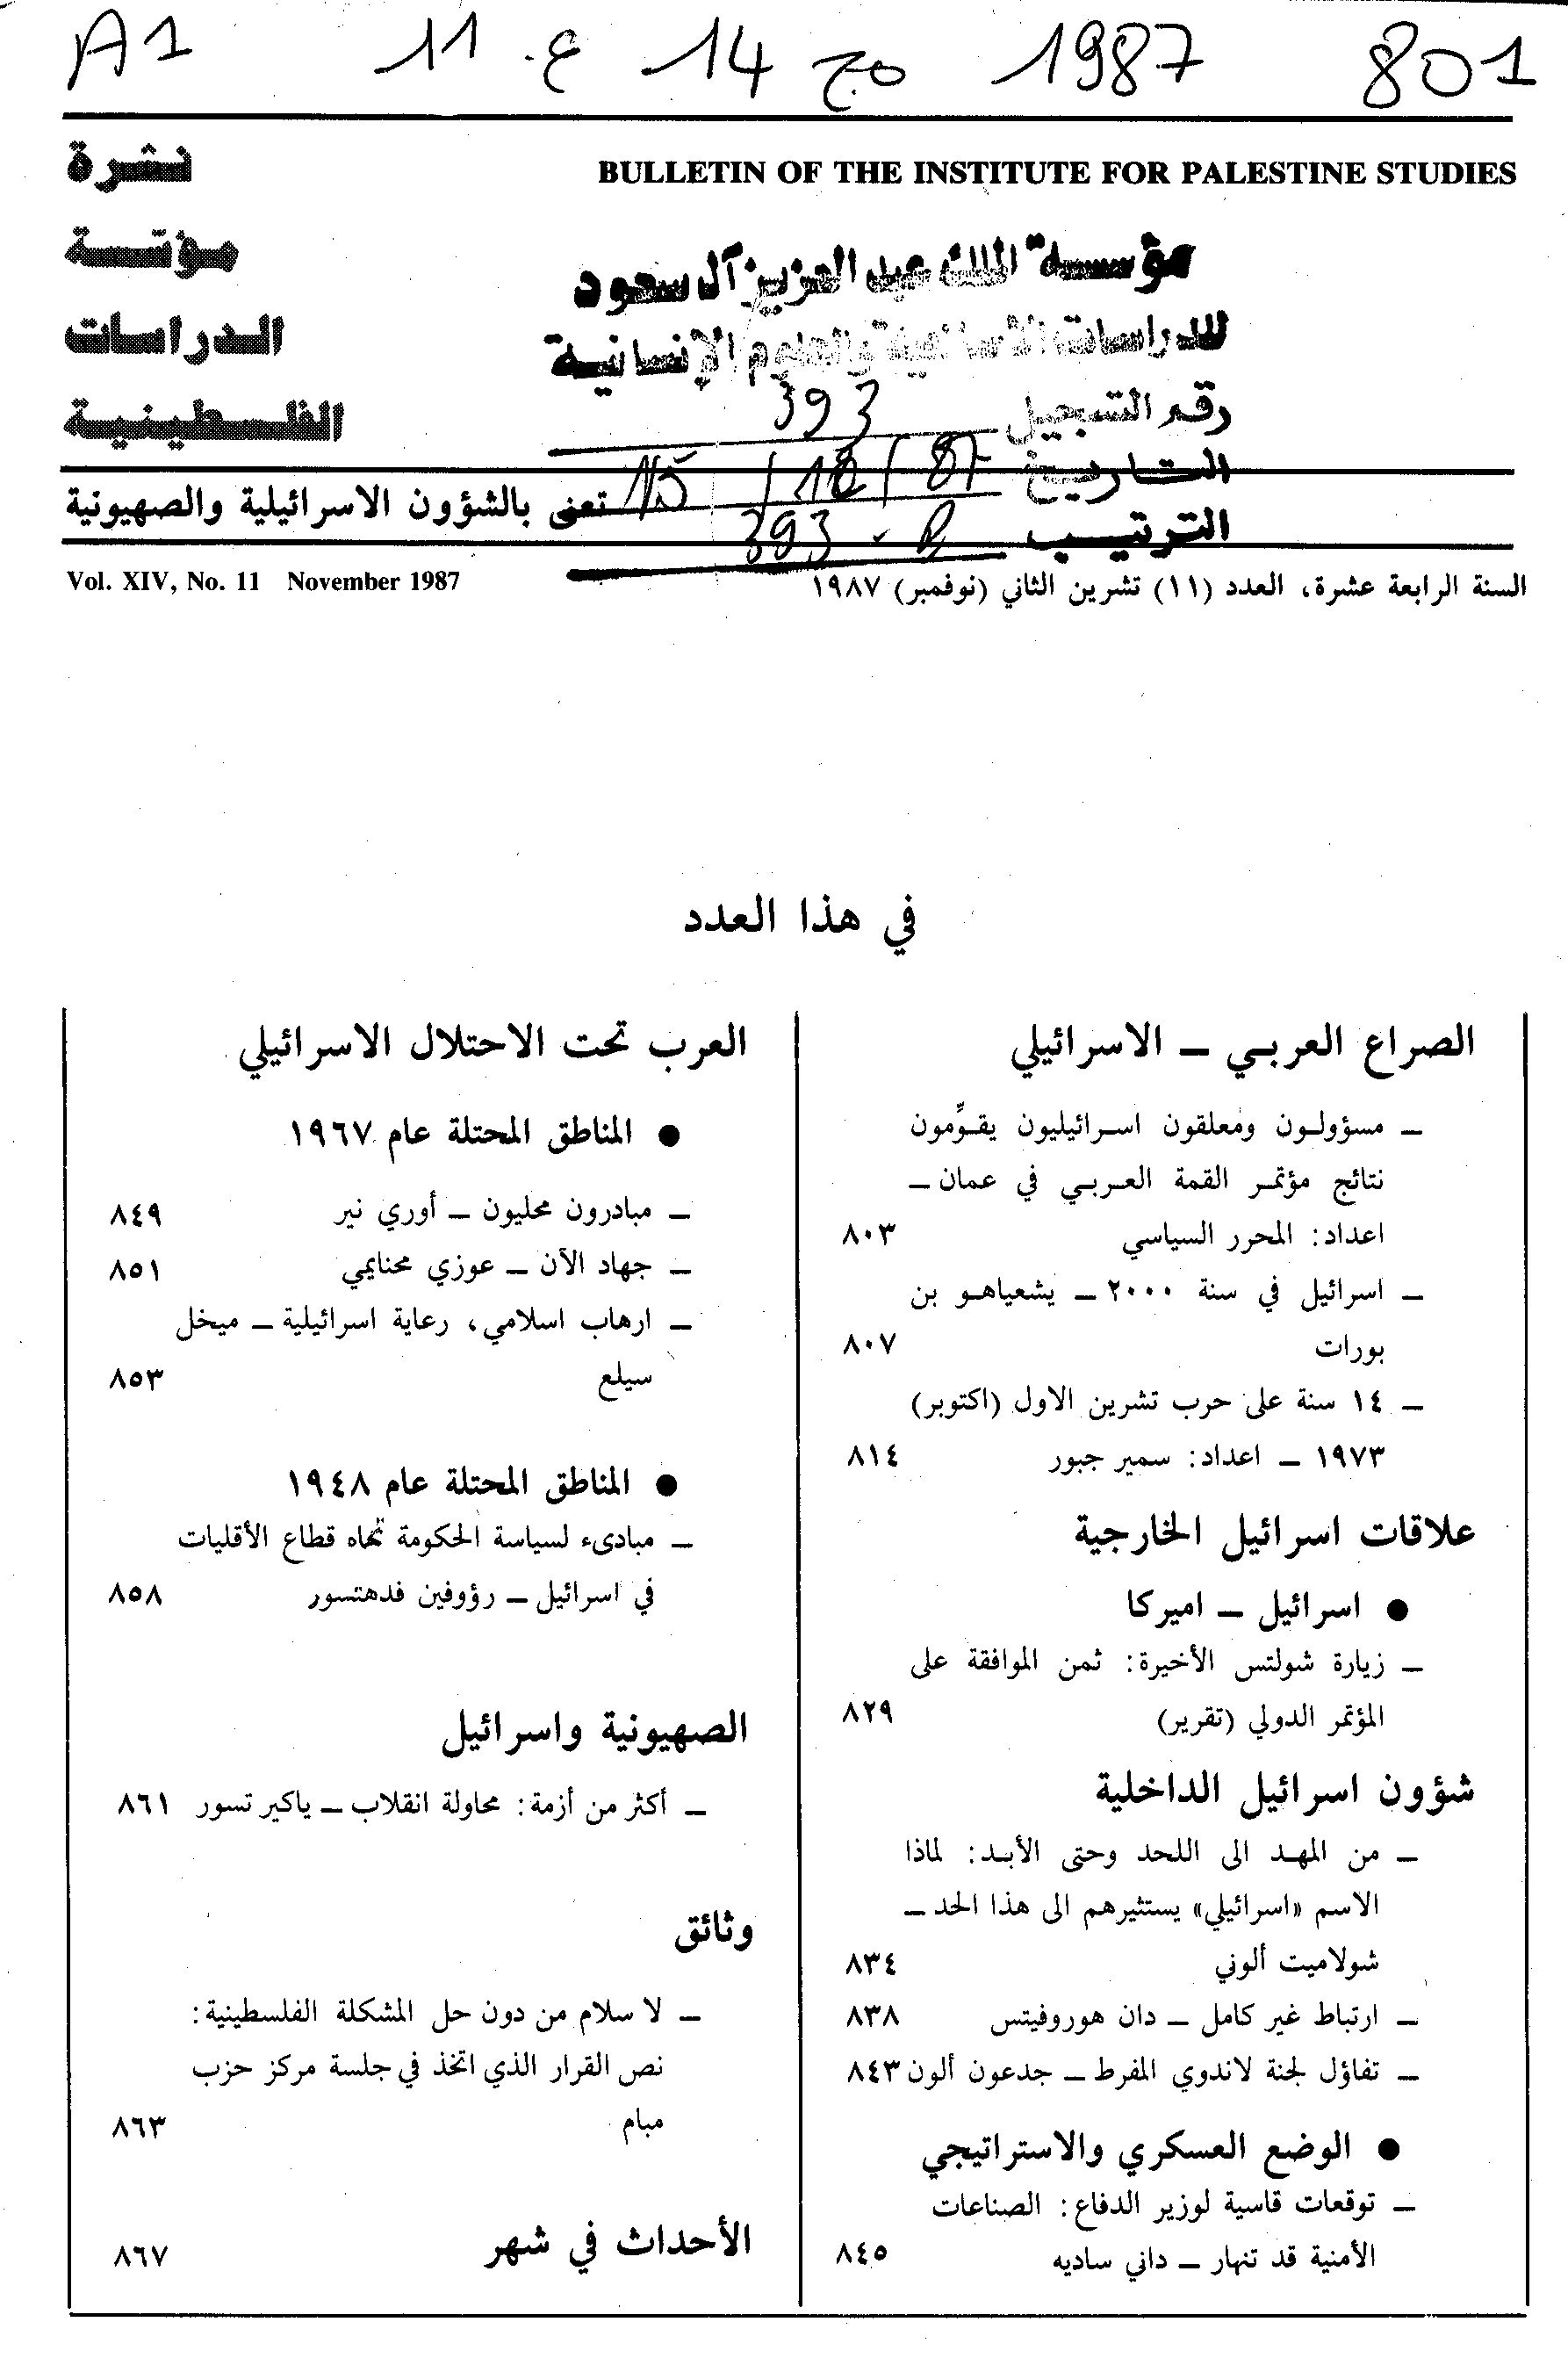 A1 11 ع. 14 مج 1987 801
BULLETIN OF THE INSTITUTE FOR PALESTINE STUDIES
نشرة
مؤسسة
الدراسات
الفلسطينية
مؤسسة الملك عبد العزيز آل سعود
للدراسات الإسلامية والعلوم الإنسانية
رقم التسجيل 393
التاريخ 87 /
الترتيب 393 -
تعنى بالشؤون الاسرائيلية والصهيونية
Vol. XIV, No. 11 November 1987
السنة الرابعة عشرة، العدد (١١) تشرين الثاني (نوفمبر) ١٩٨٧
في هذا العدد
الصراع العربي – الاسرائيلي
– مسؤولون ومعلقون اسرائيليون يقوِّمون
نتائج مؤتمر القمة العربي في عمان –
اعداد: المحرر السياسي ٨٠٣
– اسرائيل في سنة ٢٠٠٠ – يشعياهو بن
بورات ٨٠٧
– ١٤ سنة على حرب تشرين الاول (اكتوبر)
١٩٧٣ – اعداد: سمير جبور ٨١٤
علاقات اسرائيل الخارجية
● اسرائيل – اميركا
– زيارة شولتس الأخيرة: ثمن الموافقة على
المؤتمر الدولي (تقرير) ٨٢٩
شؤون اسرائيل الداخلية
– من المهد الى اللحد وحتى الأبد: لماذا
الاسم «اسرائيلي» يستثيرهم الى هذا الحد –
شولاميت ألوني ٨٣٤
– ارتباط غير كامل – دان هوروفيتس ٨٣٨
– تفاؤل لجنة لاندوي المفرط – جدعون ألون ٨٤٣
● الوضع العسكري والاستراتيجي
– توقعات قاسية لوزير الدفاع: الصناعات
الأمنية قد تنهار – داني ساديه ٨٤٥
العرب تحت الاحتلال الاسرائيلي
● المناطق المحتلة عام ١٩٦٧
– مبادرون محليون – أوري نير ٨٤٩
– جهاد الآن – عوزي محنايمي ٨٥١
– ارهاب اسلامي، رعاية اسرائيلية – ميخل
سيلع ٨٥٣
● المناطق المحتلة عام ١٩٤٨
– مبادىء لسياسة الحكومة تجاه قطاع الأقليات
في اسرائيل – رؤوفين فدهتسور ٨٥٨
الصهيونية واسرائيل
– أكثر من أزمة: محاولة انقلاب – ياكير تسور ٨٦١
وثائق
– لا سلام من دون حل المشكلة الفلسطينية:
نص القرار الذي اتخذ في جلسة مركز حزب
مبام ٨٦٣
الأحداث في شهر ٨٦٧